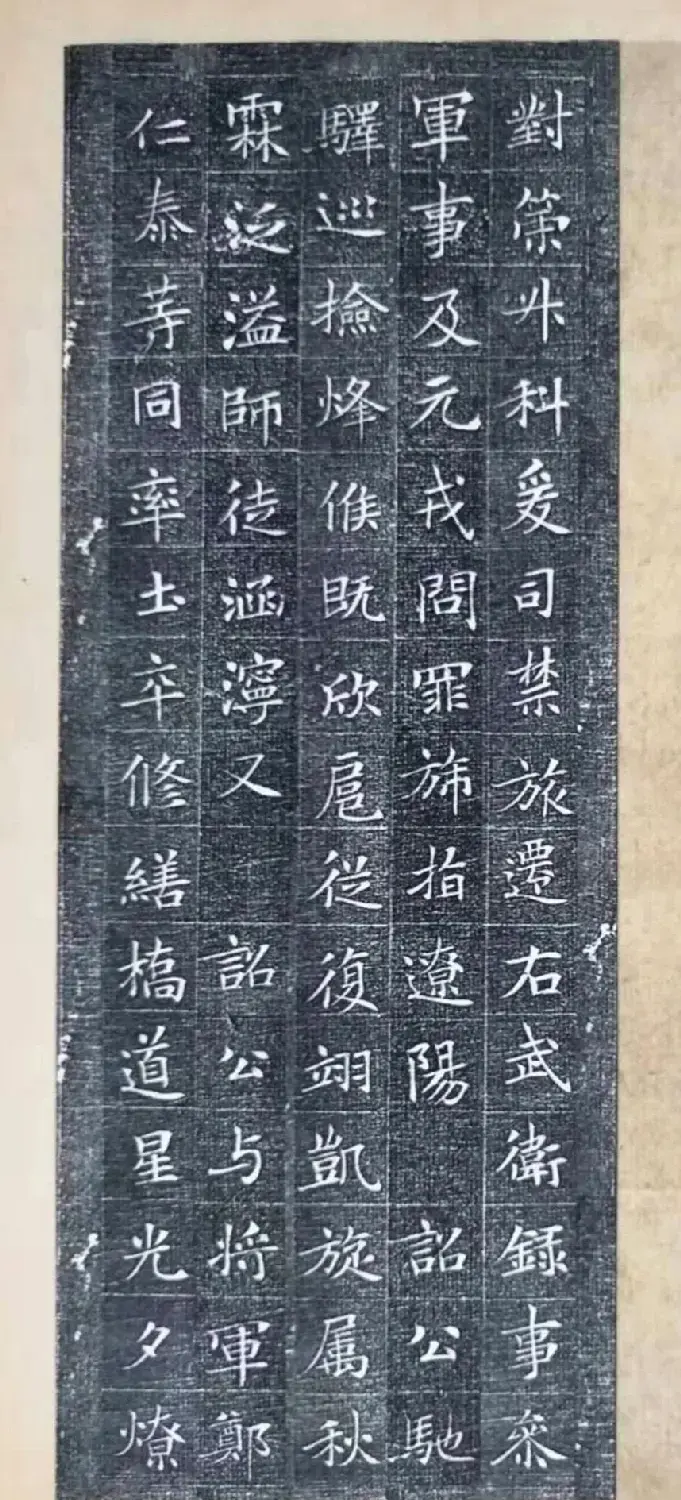 對策升科爰司禁旅遷右武衛録事叅
軍事及元戎問罪斾指遼陽詔公馳
驛巡撿烽候既欣扈從復翊凱旋属秋
霖泛溢師徒涵濘又詔公与將軍鄭
仁泰等同率士卒修繕橋道星光夕燎